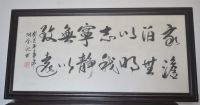 非澹
泊無
以明
志非
寧靜
無以
致遠